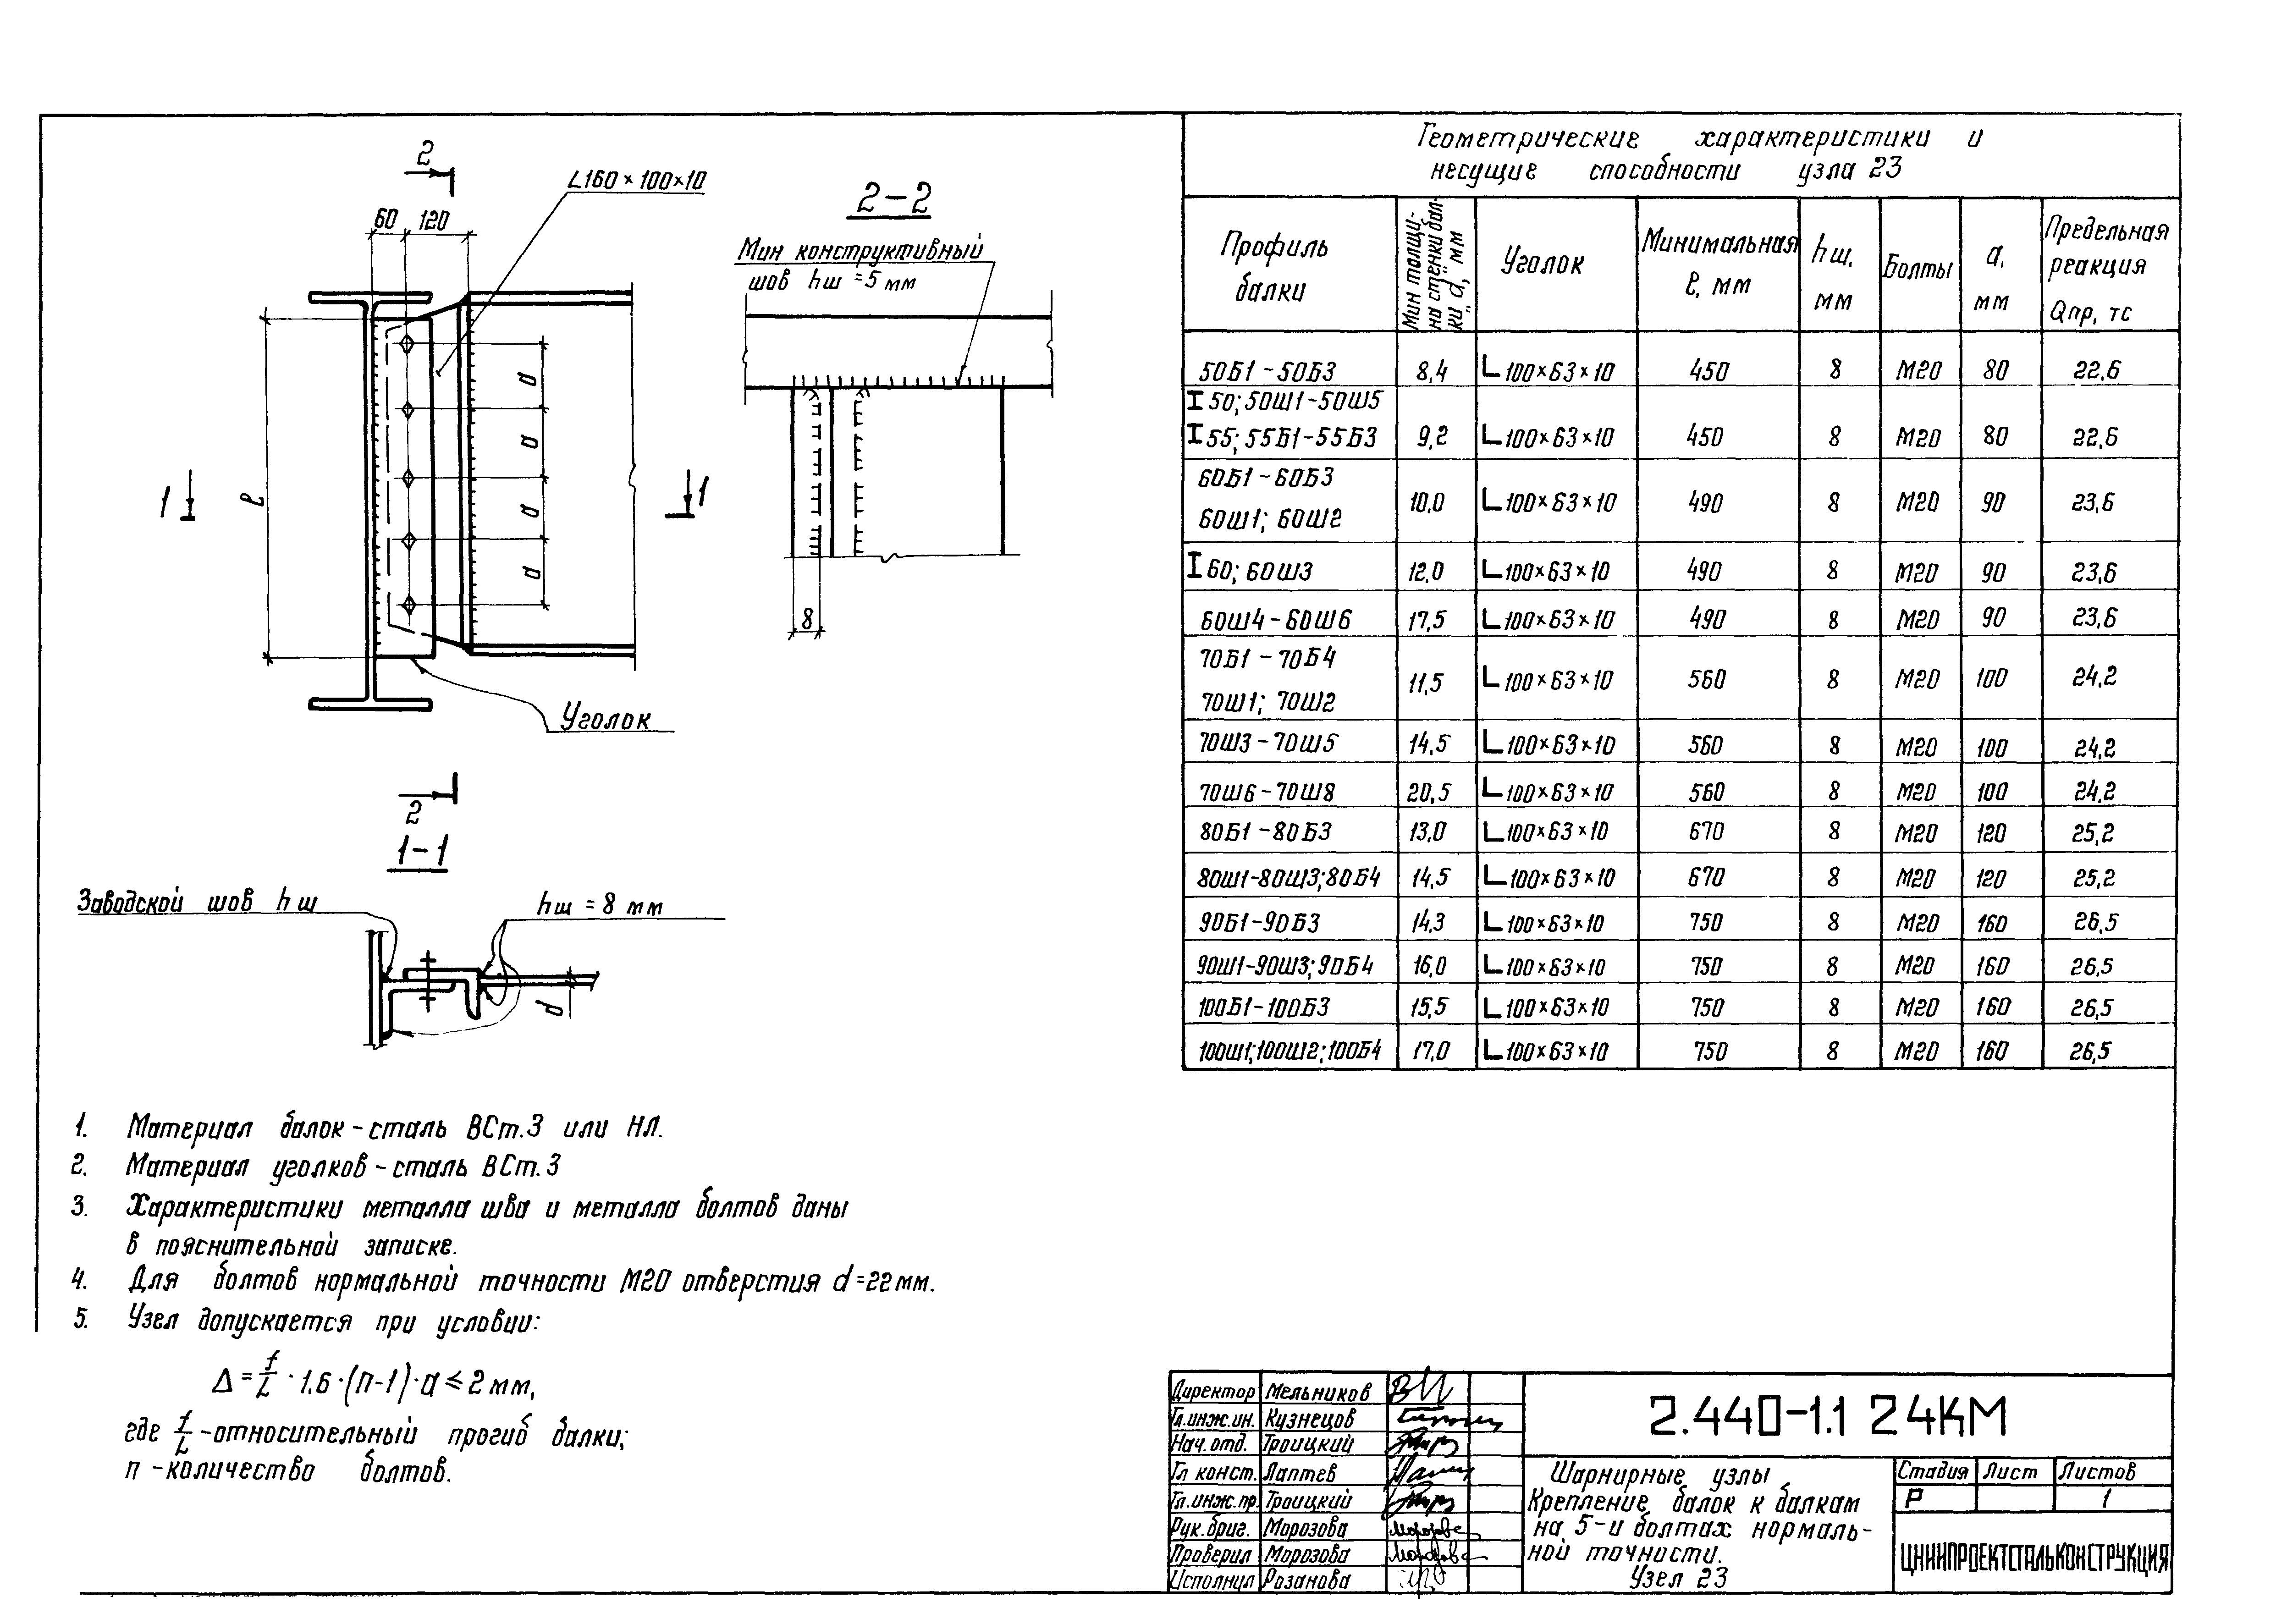 2
L160×100×10
60 120
2-2
Мин конструктивный
шов hш =5 мм
ℓ
а
а
а
а
1
1
8
Уголок
2
1-1
Заводской шов hш
hш = 8 мм
d
Геометрические характеристики и
несущие способности узла 23
Профиль балки | Мин толщина стенки балки „d", мм | Уголок | Минимальная ℓ, мм | hш, мм | Болты | а, мм | Предельная реакция Qпр, тс
50Б1-50Б3 8,4 L100×63×10 450 8 М20 80 22,6
I50; 50Ш1-50Ш5
I55; 55Б1-55Б3 9,2 L100×63×10 450 8 М20 80 22,6
60Б1-60Б3
60Ш1; 60Ш2 10,0 L100×63×10 490 8 М20 90 23,6
I60; 60Ш3 12,0 L100×63×10 490 8 М20 90 23,6
60Ш4-60Ш6 17,5 L100×63×10 490 8 М20 90 23,6
70Б1-70Б4
70Ш1; 70Ш2 11,5 L100×63×10 560 8 М20 100 24,2
70Ш3-70Ш5 14,5 L100×63×10 560 8 М20 100 24,2
70Ш6-70Ш8 20,5 L100×63×10 560 8 М20 100 24,2
80Б1-80Б3 13,0 L100×63×10 670 8 М20 120 25,2
80Ш1-80Ш3; 80Б4 14,5 L100×63×10 670 8 М20 120 25,2
90Б1-90Б3 14,3 L100×63×10 750 8 М20 160 26,5
90Ш1-90Ш3; 90Б4 16,0 L100×63×10 750 8 М20 160 26,5
100Б1-100Б3 15,5 L100×63×10 750 8 М20 160 26,5
100Ш1; 100Ш2; 100Б4 17,0 L100×63×10 750 8 М20 160 26,5
1. Материал балок-сталь ВСт.3 или НЛ.
2. Материал уголков-сталь ВСт.3
3. Характеристики металла шва и металла болтов даны
в пояснительной записке.
4. Для болтов нормальной точности М20 отверстия d=22мм.
5. Узел допускается при условии:
Δ = f/L · 1.6 · (п-1) · а ≤ 2 мм,
где f/L -относительный прогиб балки;
п -количество болтов.
Директор Мельников
Гл.инж.ин. Кузнецов
Нач.отд. Троицкий
Гл конст. Лаптев
Гл.инж.пр. Троицкий
Рук.бриг. Морозова
Проверил Морозова
Исполнил Розанова
2.440-1.1 24КМ
Шарнирные узлы
Крепление балок к балкам
на 5-и болтах нормаль-
ной точности.
Узел 23
Стадия Лист Листов
Р 1
ЦНИИПРОЕКТСТАЛЬКОНСТРУКЦИЯ